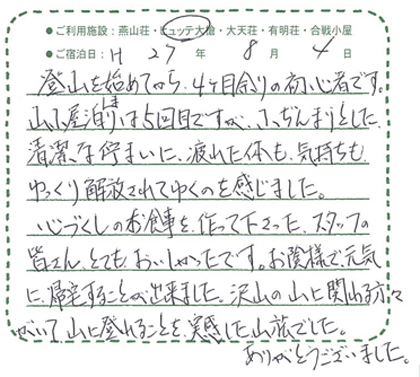 ●ご利用施設：燕山荘・ヒュッテ大槍・大天荘・有明荘・合戦小屋
●ご宿泊日：H 27 年 8 月 4 日
登山を始めてから、4ヶ月余りの初心者です。
山小屋泊りは5回目ですが、こぢんまりとした
清潔な佇まいに、疲れた体も、気持ちも
ゆっくり解放されてゆくのを感じました。
心づくしのお食事を、作って下さった、スタッフの
皆さん、とても、おいしかったです。お陰様で、元気
に、帰宅することが出来ました。沢山の山に関わる方々
がいて山に登れることを、実感した山荘でした。
ありがとうございました。